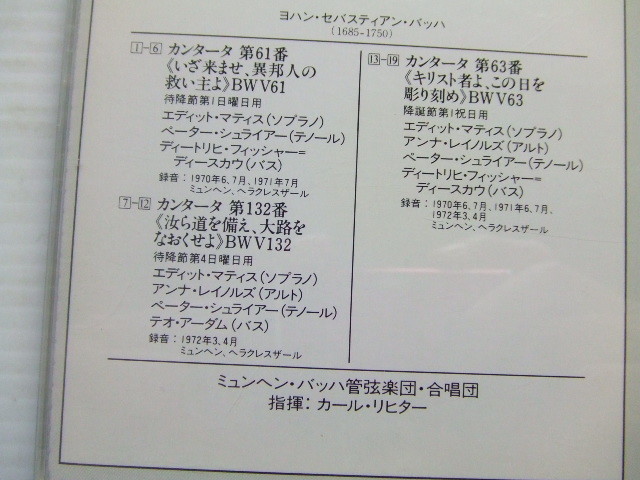 ヨハン・セバスティアン・バッハ
(1685-1750)
1-6 カンタータ 第61番
《いざ来ませ、異邦人の
救い主よ》BWV61
待降節第1日曜日用
エディット・マティス(ソプラノ)
ペーター・シュライアー(テノール)
ディートリヒ・フィッシャー=
ディースカウ(バス)
録音：1970年6、7月、1971年7月
ミュンヘン、ヘラクレスザール
7-12 カンタータ 第132番
《汝ら道を備え、大路を
なおくせよ》BWV132
待降節第4日曜日用
エディット・マティス(ソプラノ)
アンナ・レイノルズ(アルト)
ペーター・シュライアー(テノール)
テオ・アーダム(バス)
録音：1972年3、4月
ミュンヘン、ヘラクレスザール
13-19 カンタータ 第63番
《キリスト者よ、この日を
彫り刻め》BWV63
降誕節第1祝日用
エディット・マティス(ソプラノ)
アンナ・レイノルズ(アルト)
ペーター・シュライアー(テノール)
ディートリヒ・フィッシャー=
ディースカウ(バス)
録音：1970年6、7月、1971年6、7月、
1972年3、4月
ミュンヘン、ヘラクレスザール
ミュンヘン・バッハ管弦楽団・合唱団
指揮：カール・リヒター